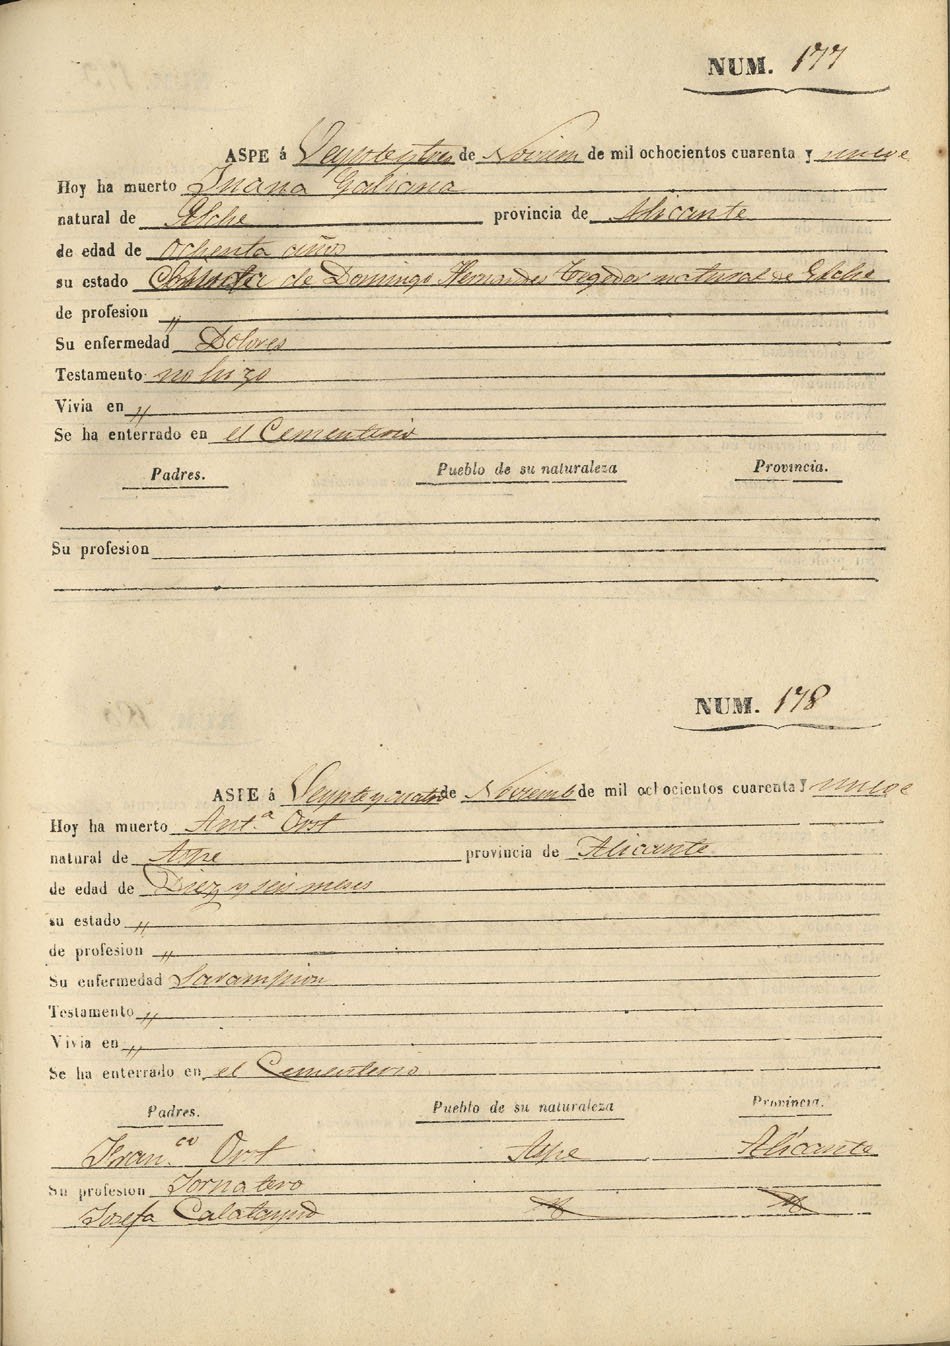 NUM. 177
ASPE á Veynteytres de Noviem de mil ochocientos cuarenta y nueve
Hoy ha muerto Juana Galiana
natural de Elche provincia de Alicante
de edad de ochenta años
su estado de Domingo Hernandes Tegedor natural de Elche
de profesion "
Su enfermedad Dolores
Testamento no hizo
Vivia en "
Se ha enterrado en el Cementerio
Padres. Pueblo de su naturaleza Provincia.
Su profesion
NUM. 178
ASPE á Veynte y cuatro de Noviemb de mil ochocientos cuarenta y nueve
Hoy ha muerto Ant.ª Ort
natural de Aspe provincia de Alicante
de edad de Diez y seis meses
su estado "
de profesion "
Su enfermedad Sarampion
Testamento "
Vivia en "
Se ha enterrado en el Cementerio
Padres. Pueblo de su naturaleza Provincia.
Fran.co Ort Aspe Alicante
Su profesion Jornalero
Josefa Calatayud